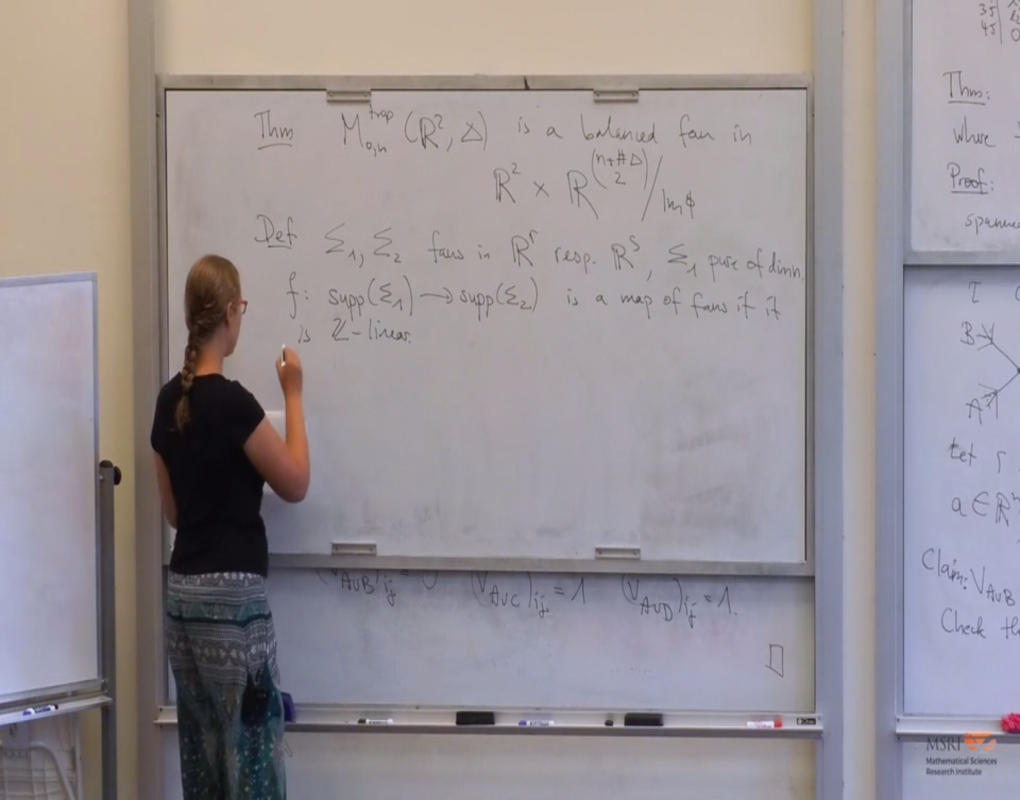 Thm M_{0,n}^{trop} (ℝ², Δ) is a balanced fan in
ℝ² × ℝ^{(n+#Δ \choose 2)} / Im ϕ
Def Σ₁, Σ₂ fans in ℝ^r resp. ℝ^s, Σ₁ pure of dim n
f: supp(Σ₁) → supp(Σ₂) is a map of fans if it
is ℤ-linear.
(V_{AuB})_{ij} = 0 (V_{AuC})_{ij} = 1 (V_{AuD})_{ij} = 1.
35
45
Thm:
where
Proof:
B
A
Let
a ∈ ℝ
Claim: V_{AuB}
Check
MSRI
Mathematical Sciences
Research Institute